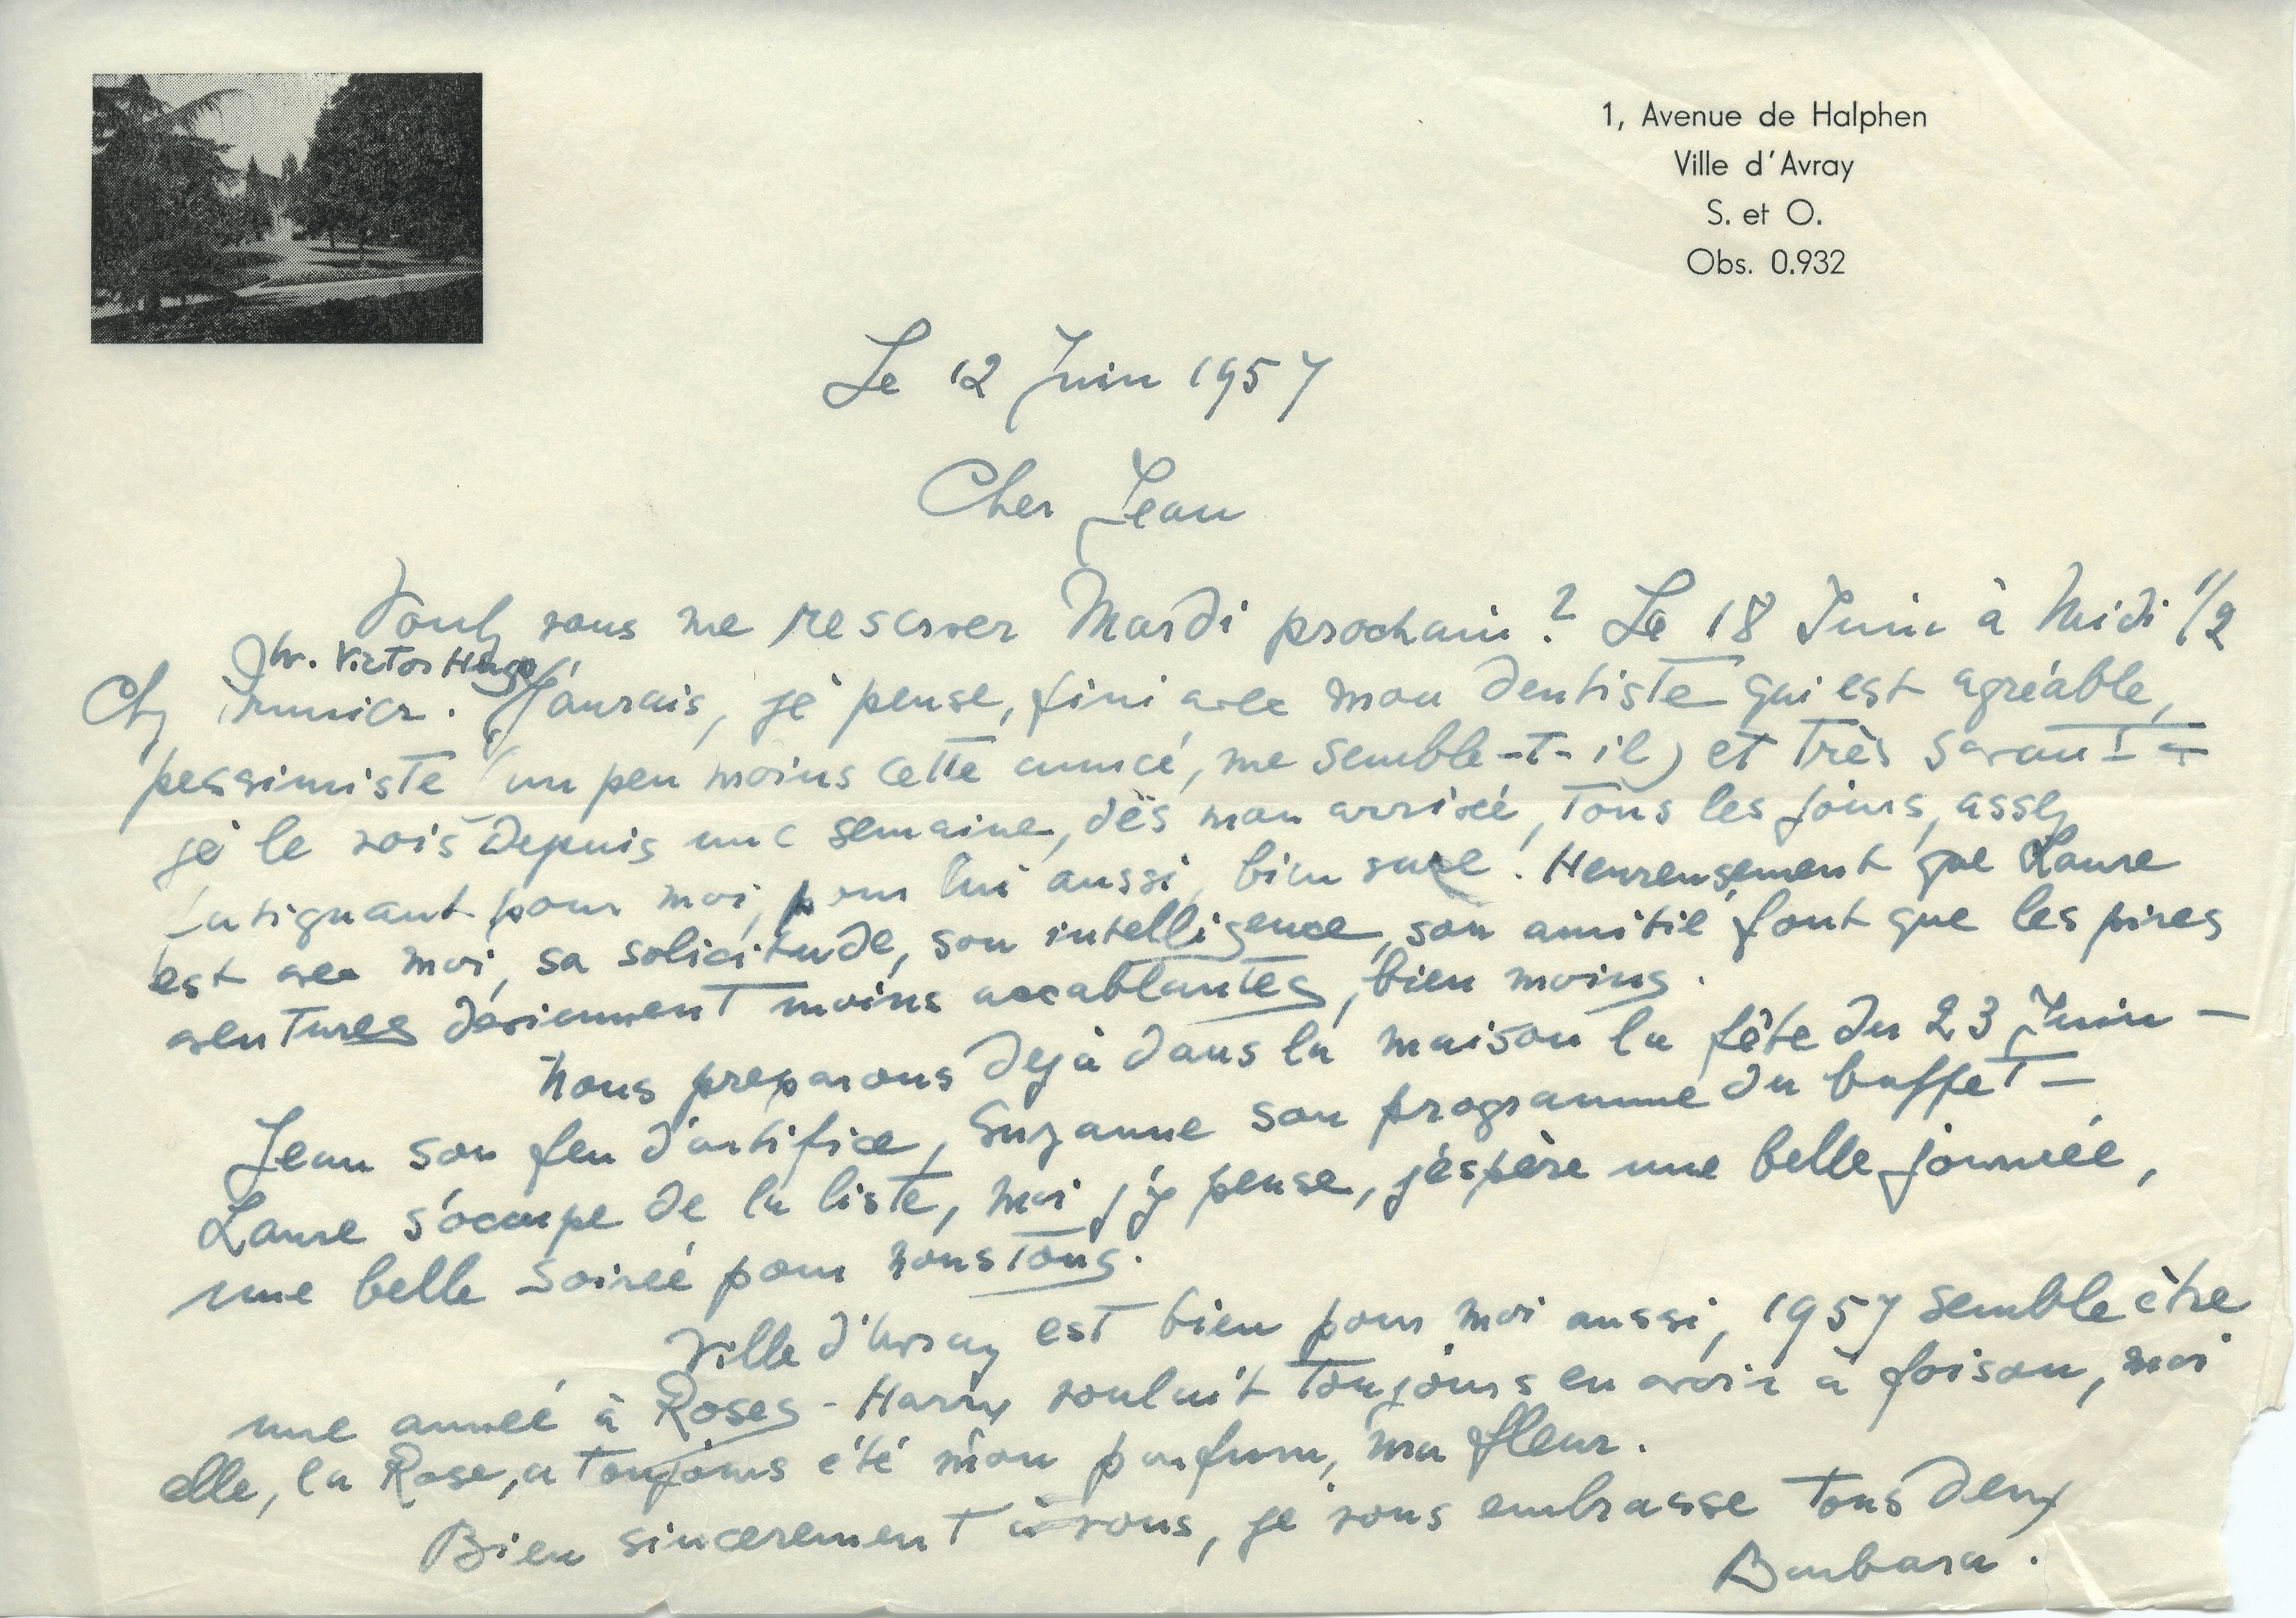 1, Avenue de Halphen
Ville d'Avray
S. et O.
Obs. 0.932
Le 12 Juin 1957
Cher Jean
Voulez vous me reserver Mardi prochain ? Le 18 Juin à Midi 1/2
Av. Victor Hugo
Chez Prunier. J'aurais, je pense, fini avec mon dentiste qui est agréable,
pessimiste (un peu moins cette année, me semble-t-il) et très savant -
je le vois depuis une semaine, dès mon arrivée, tous les jours, assez
fatiguant pour moi, pour lui aussi, bien sure. Heureusement que Laure
est avec moi, sa solicitude, son intelligence, son amitié font que les pires
aventures deviennent moins accablantes, bien moins.
Nous preparons dejà dans la maison la fête du 23 Juin -
Jean son feu d'artifice, Suzanne son programme du buffet -
Laure s'occupe de la liste, moi j'y pense, j'éspère une belle journée,
une belle soirée pour nous tous.
Ville d'Avray est bien pour moi aussi, 1957 semble être
une année à Roses - Harry voulait toujours en avoir à foison, moi
elle, la Rose, a toujours été mon parfum, ma fleur.
Bien sincerement à vous, je vous embrasse tous deux
Barbara.